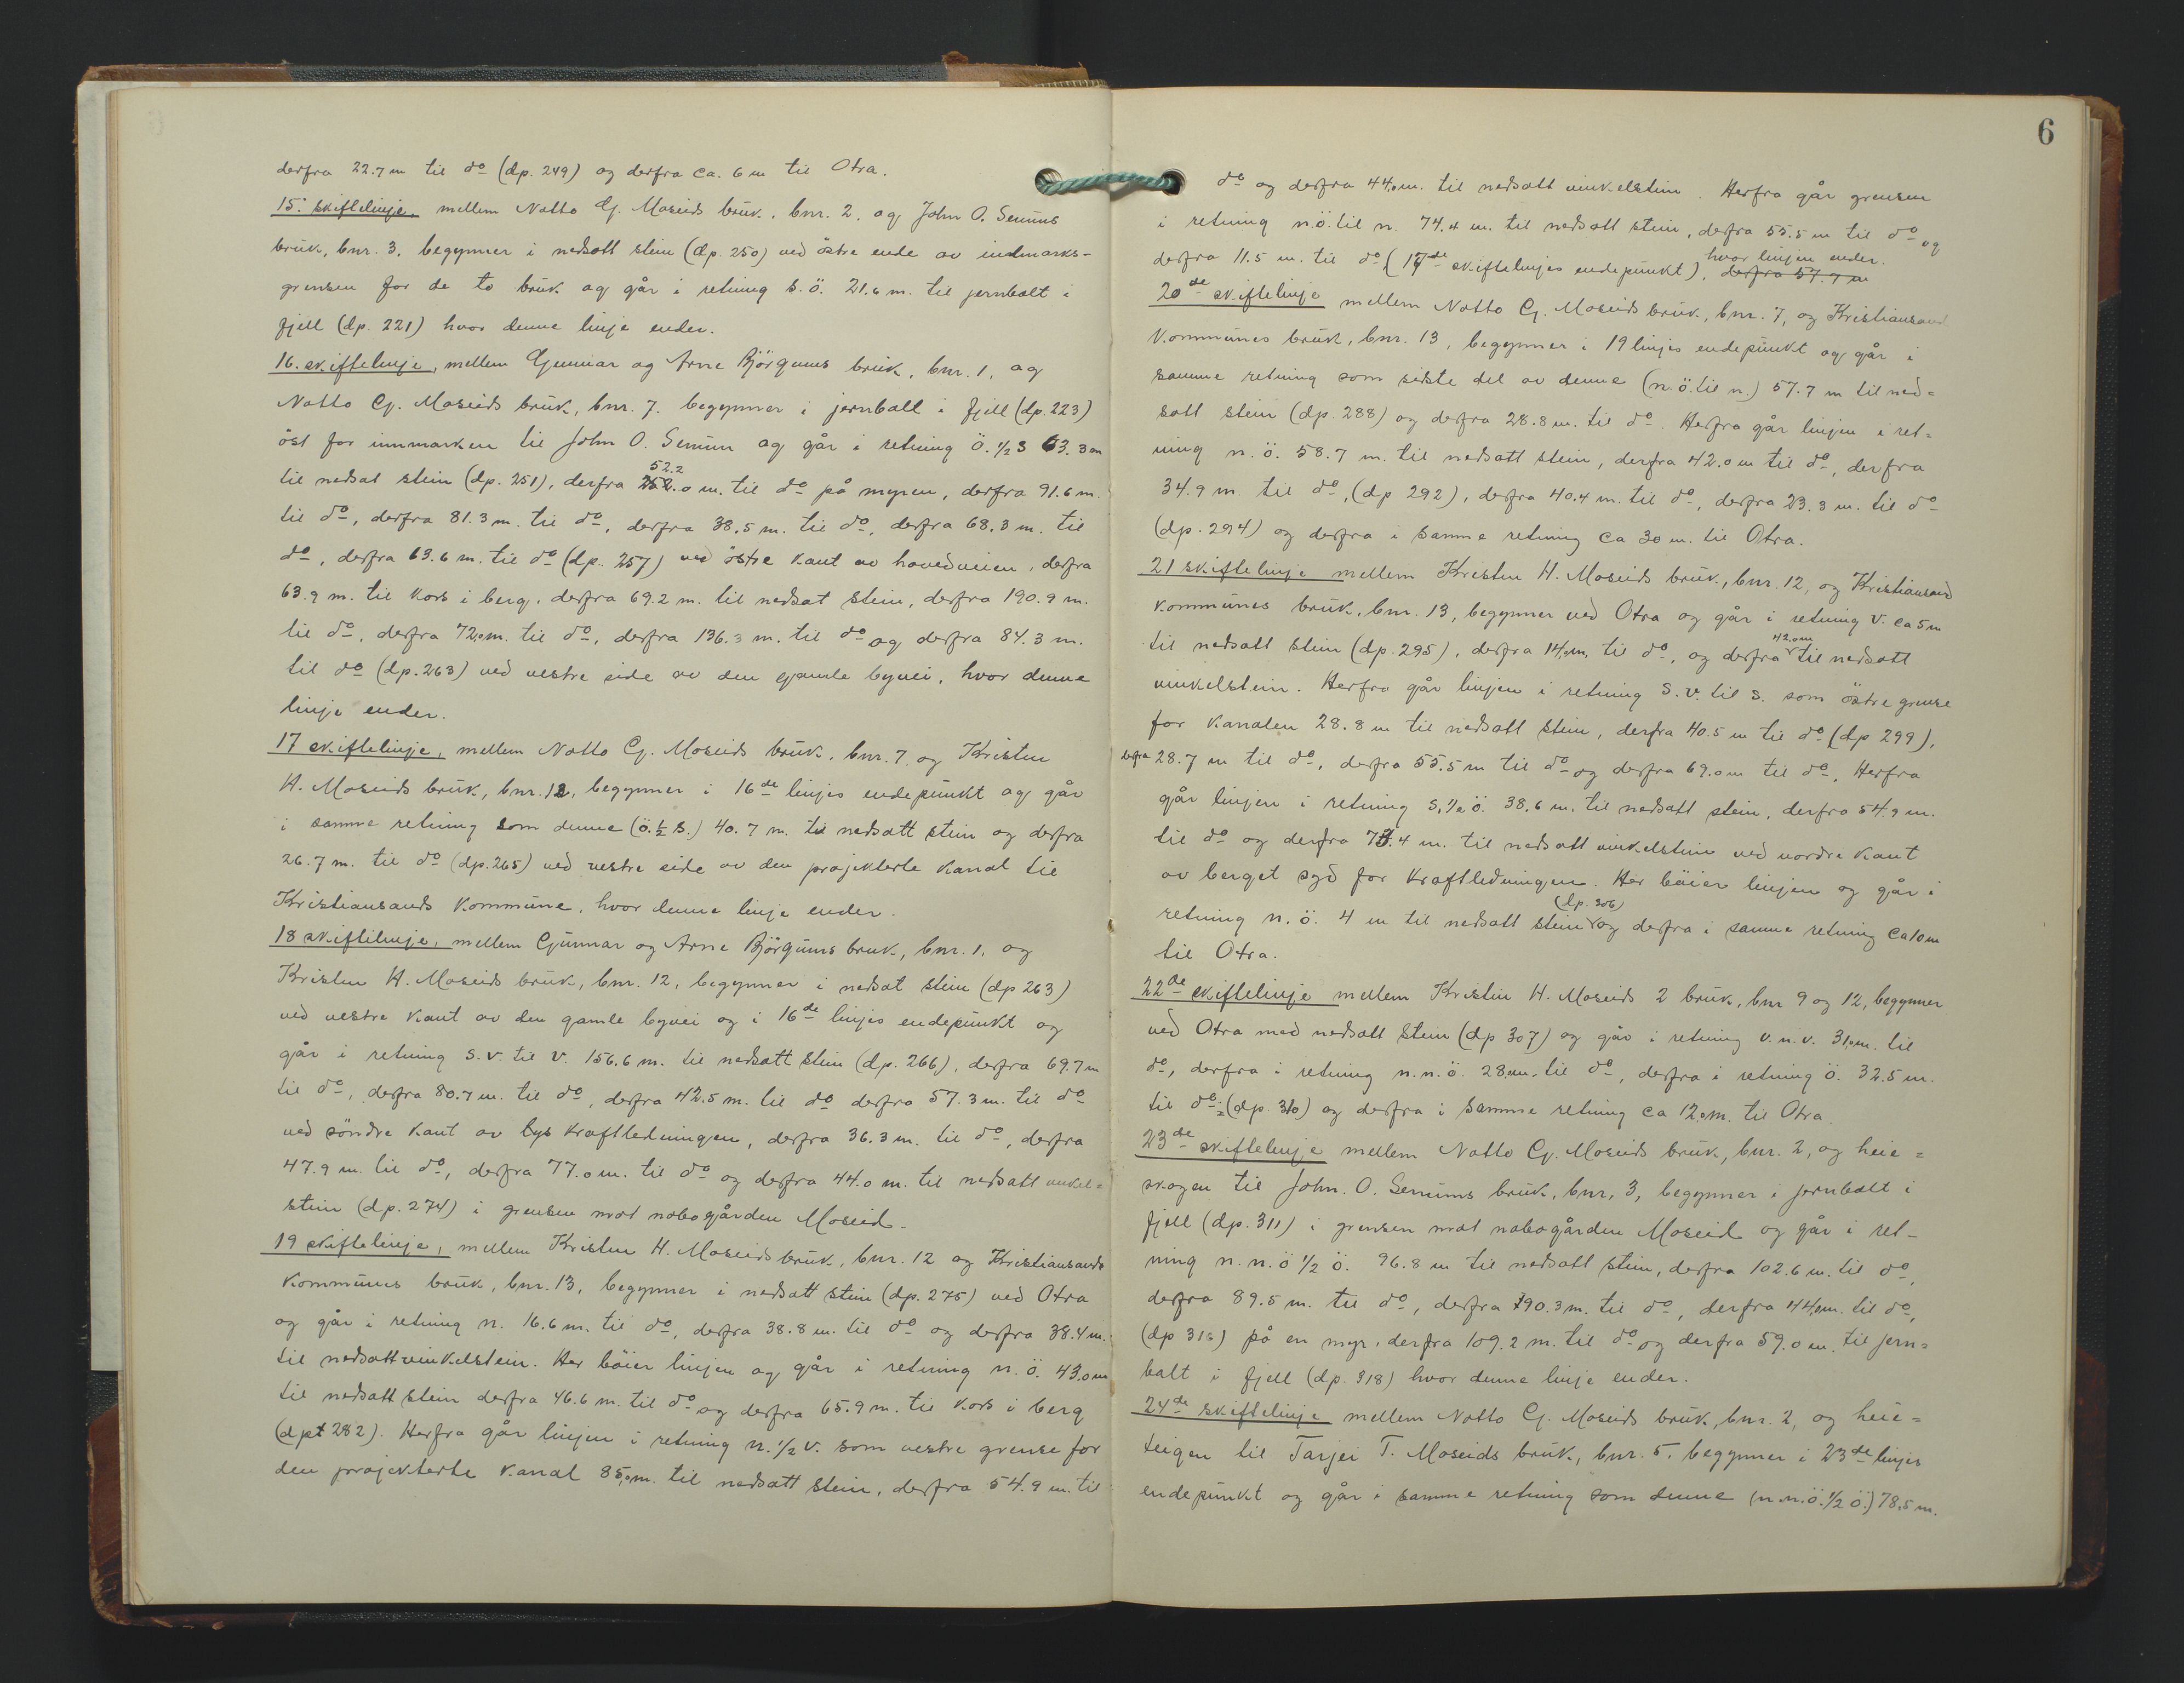 derfra 22.7 m til do (dp. 249) og derfra ca. 6 m til Otra.
15. skiftelinje, mellem Notto G. Moseids bruk, bnr. 2. og John O. Senums
bruk, bnr. 3, begynner i nedsatt stein (dp. 250) ved östre ende av indmarks-
grensen for de to bruk og går i retning s.ö. 21.6 m. til jernbolt i
fjell (dp. 221) hvor denne linje ender.
16. skiftelinje, mellem Gunnar og Arne Björgums bruk, bnr. 1, og
Notto G. Moseids bruk, bnr. 7. begynner i jernbolt i fjell (dp. 223)
öst for innmarken til John O. Senum og går i retning Ö. 1/2 S 63.3 m
52.2
til nedsat stein (dp. 251), derfra 252.0 m. til do på myren, derfra 91.6 m.
til do, derfra 81.3 m. til do, derfra 38.5 m. til do, derfra 68.3 m. til
do, derfra 63.6 m. til do (dp. 257) ved östre kant av hovedveien, derfra
63.9 m. til kors i berg, derfra 69.2 m. til nedsat stein, derfra 190.9 m.
til do, derfra 72.0 m. til do, derfra 136.3 m. til do og derfra 84.3 m.
til do (dp. 263) ved vestre side av den gamle byvei, hvor denne
linje ender.
17 skiftelinje, mellem Notto G. Moseids bruk, bnr. 7 og Kristen
H. Moseids bruk, bnr. 12, begynner i 16de linjes endepunkt og går
i samme retning som denne (ö. 1/2 s.) 40.7 m. til nedsatt stein og derfra
26.7 m. til do (dp. 265) ved vestre side av den projekterte kanal til
Kristiansands kommune, hvor denne linje ender.
18 skiftelinje, mellem Gunnar og Arne Björgums bruk, bnr. 1, og
Kristen H. Moseids bruk, bnr. 12, begynner i nedsat stein (dp 263)
ved vestre kant av den gamle byvei og i 16de linjes endepunkt og
går i retning s.v. til v. 156.6 m. til nedsatt stein (dp. 266), derfra 69.7 m
til do, derfra 80.7 m. til do, derfra 42.5 m. til do derfra 57.3 m. til do
ved söndre kant av bys kraftledningen, derfra 36.3 m. til do, derfra
47.9 m. til do, derfra 77.0 m. til do og derfra 44.0 m. til nedsatt vinkel=
stein (dp. 274) i grensen mot nabogården Moseid.
19 skiftelinje, mellem Kristen H. Moseids bruk, bnr. 12 og Kristiansands
kommunes bruk, bnr. 13, begynner i nedsatt stein (dp. 275) ved Otra
og går i retning n. 16.6 m. til do, derfra 38.8 m. til do og derfra 38.4 m.
til nedsatt vinkelstein. Her böier linjen og går i retning n.ö. 43.0 m
til nedsatt stein derfra 46.6 m. til do og derfra 65.9 m. til kors i berg
(dpt 282). Herfra går linjen i retning n. 1/2 v. som vestre grense for
den projekterte kanal 85.0 m. til nedsatt stein, derfra 54.9 m. til
6
do og derfra 44.0 m. til nedsatt vinkelstein. Herfra går grensen
i retning n.ö. til n. 74.4 m. til nedsatt stein, derfra 55.5 m til do og
hvor linjen ender.
derfra 11.5 m. til do (17de skiftelinjes endepunkt), derfra 57.7 m
20de skiftelinje mellem Notto G. Moseids bruk, bnr. 7, og Kristiansand
kommunes bruk, bnr. 13, begynner i 19 linjes endepunkt og går i
samme retning som siste del av denne (n.ö. til n.) 57.7 m til ned=
satt stein (dp. 288) og derfra 28.8 m. til do. Herfra går linjen i ret=
ning n.ö. 58.7 m. til nedsatt stein, derfra 42.0 m til do, derfra
34.9 m. til do, (dp 292), derfra 40.4 m. til do, derfra 23.3 m. til do
(dp. 294) og derfra i samme retning ca 30 m. til Otra.
21 skiftelinje mellem Kristen H. Moseids bruk, bnr. 12, og Kristiansand
kommunes bruk, bnr. 13, begynner ved Otra og går i retning v. ca 5 m
42.0 m
til nedsatt stein (dp. 295), derfra 14.0 m. til do, og derfra til nedsatt
vinkelstein. Herfra går linjen i retning s.v. til s. som östre grense
for kanalen 28.8 m til nedsatt stein, derfra 40.5 m til do (dp 299),
derfra 28.7 m til do, derfra 55.5 m til do og derfra 69.0 m til do. Herfra
går linjen i retning s. 1/2 ö. 38.6 m. til nedsatt stein, derfra 54.9 m.
til do og derfra 73.4 m. til nedsatt vinkelstein ved nordre kant
av berget syd for kraftledningen. Her böier linjen og går i
(dp. 306)
retning n.ö. 4 m til nedsatt stein og derfra i samme retning ca 10 m
til Otra.
22de skiftelinje mellem Kristen H. Moseids 2 bruk, bnr 9 og 12, begynner
ved Otra med nedsatt stein (dp 307) og går i retning v.n.v. 31.0 m. til
do, derfra i retning n.n.ö. 28.0 m. til do, derfra i retning ö. 32.5 m.
til do (dp. 310) og derfra i samme retning ca 12.0 m. til Otra
23de skiftelinje mellem Notto G. Moseids bruk, bnr. 2, og heie=
skogen til John. O. Senums bruk, bnr. 3, begynner i jernbolt i
fjell (dp. 311) i grensen mot nabogården Moseid og går i ret-
ning n.n.ö 1/2 ö. 96.8 m til nedsatt stein, derfra 102.6 m. til do,
derfra 89.5 m. til do, derfra 190.3 m. til do, derfra 44.0 m. til do,
(dp 316) på en myr, derfra 109.2 m. til do og derfra 59.0 m. til jern=
bolt i fjell (dp. 318) hvor denne linje ender.
24de skiftelinje mellem Notto G. Moseids bruk, bnr. 2, og heie=
teigen til Tarjei T. Moseids bruk, bnr. 5, begynner i 23de linjes
endepunkt og går i samme retning som denne (n.n.ö. 1/2 ö.) 78.5 m.